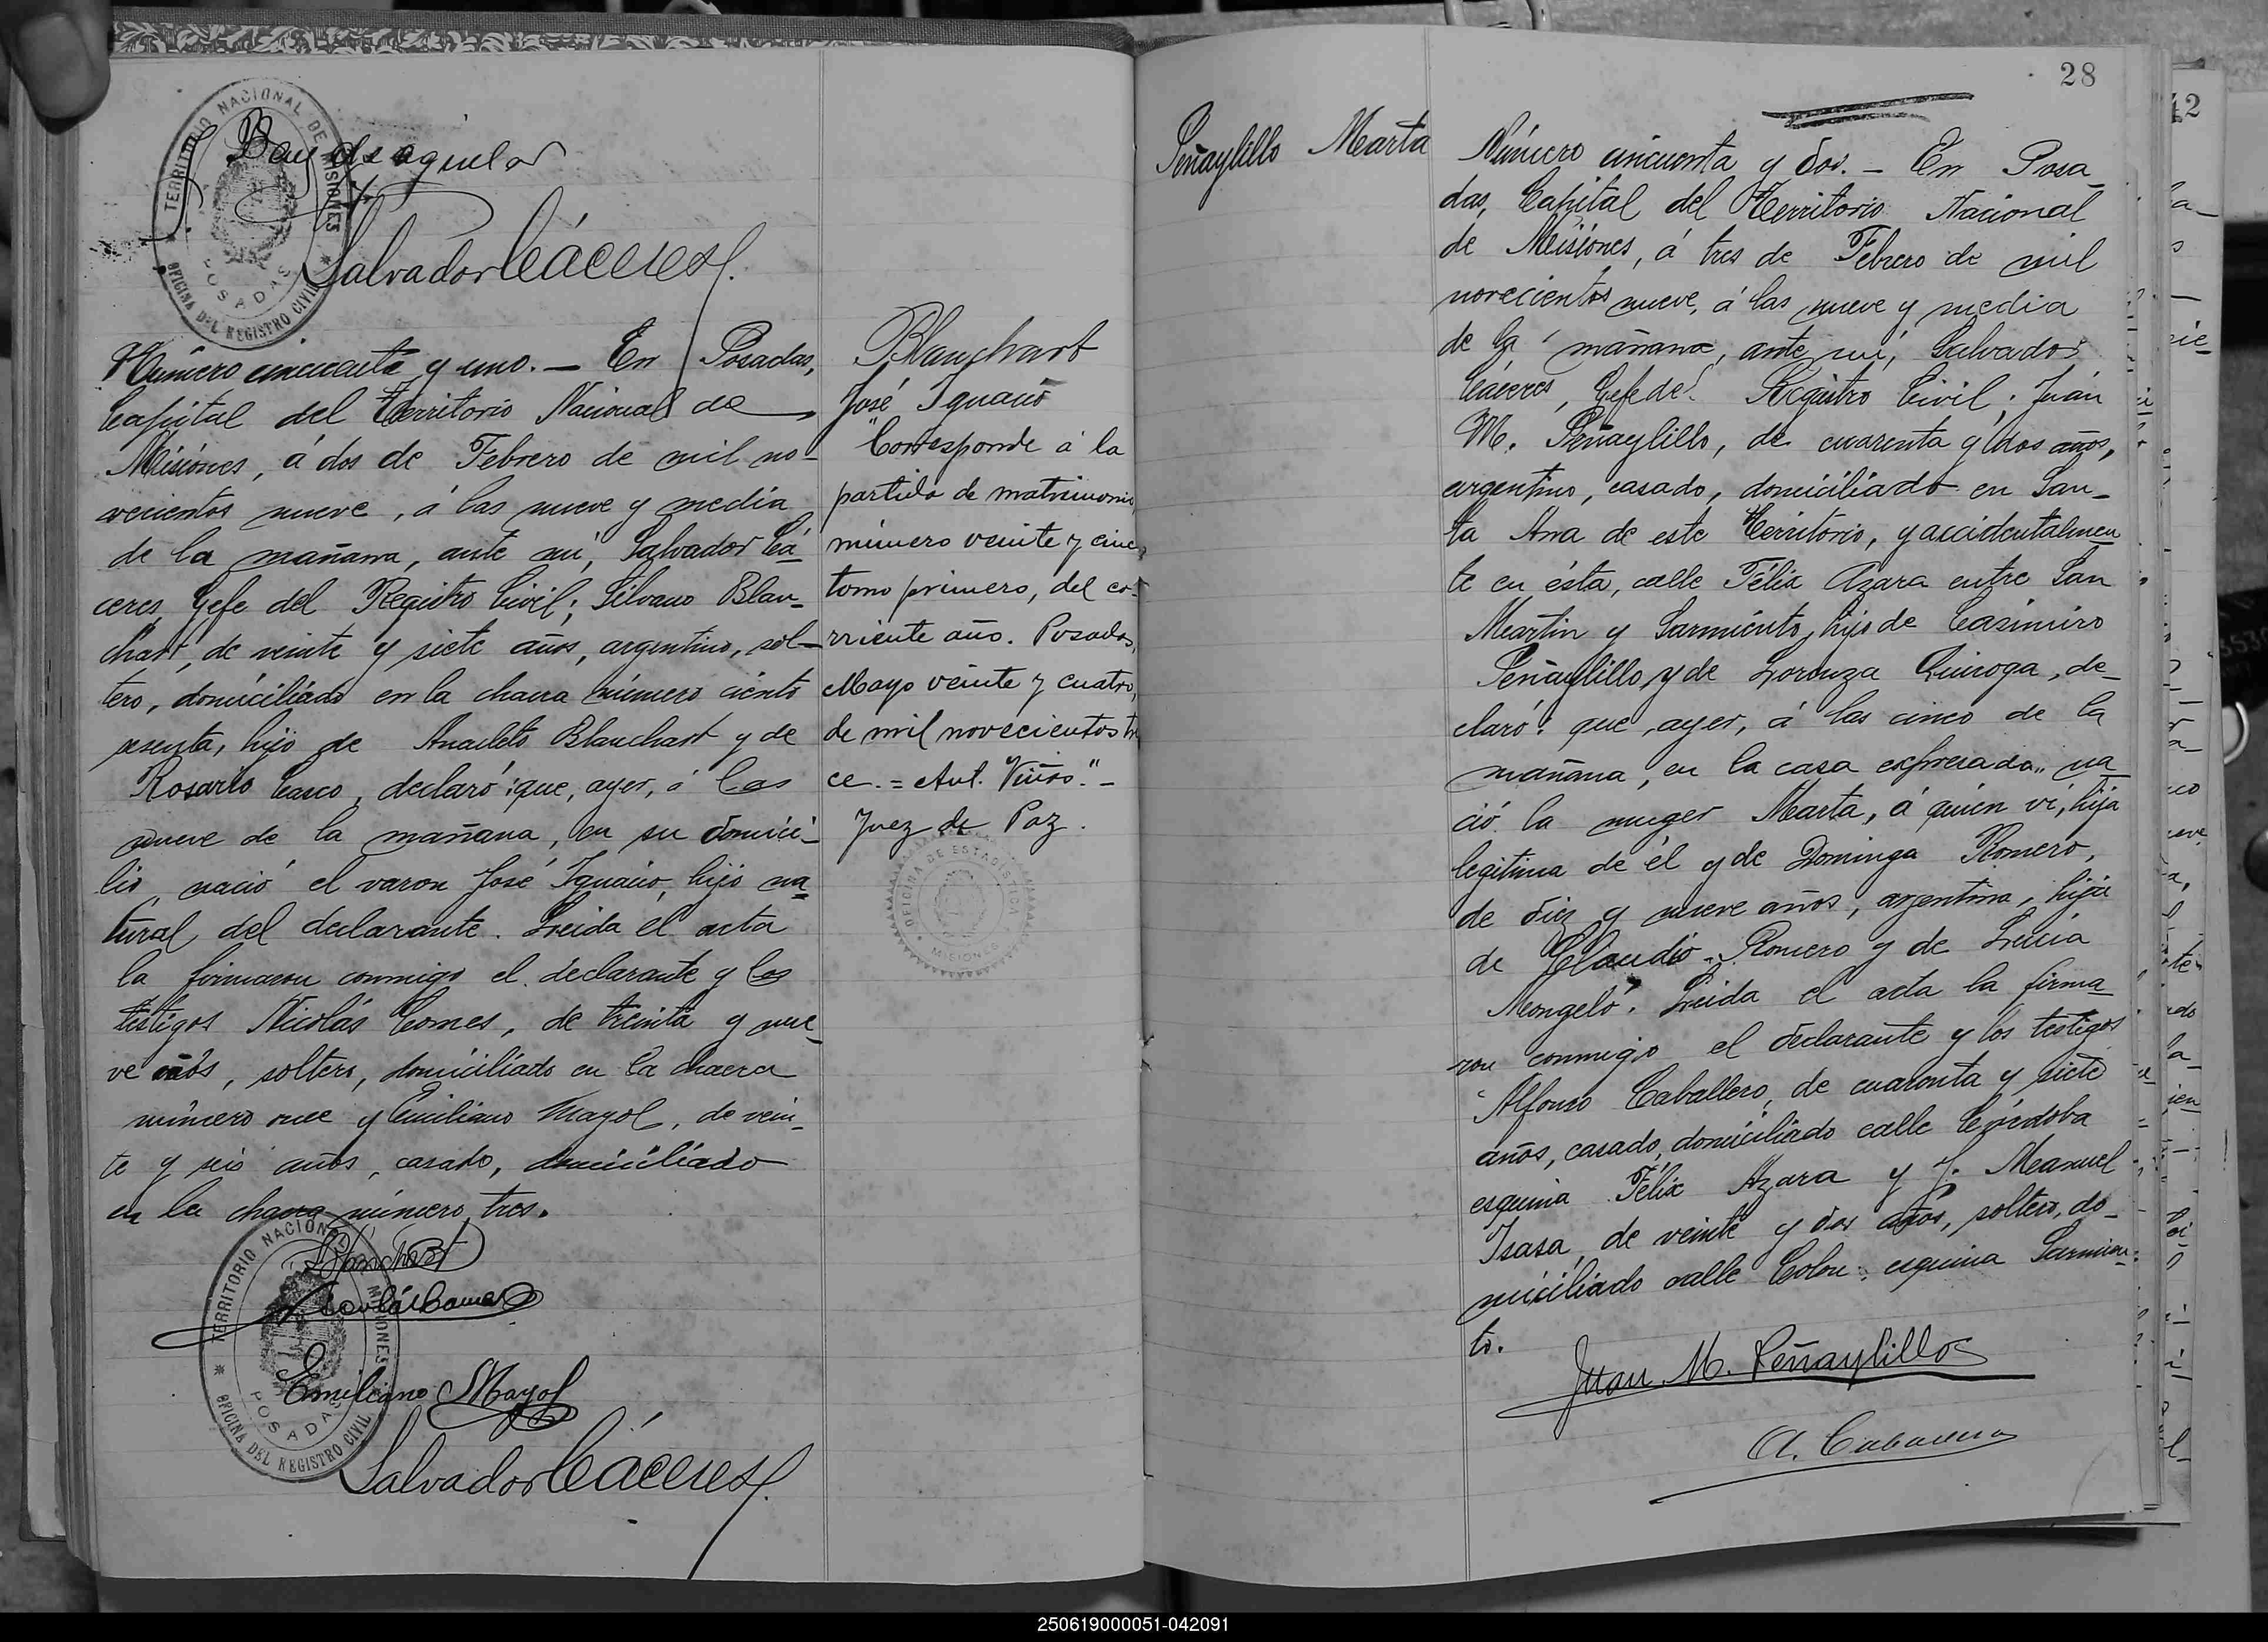 TERRITORIO NACIONAL DE MISIONES
OFICINA DEL REGISTRO CIVIL
POSADAS
Salvador Cáceres
Número cincuenta y uno. — En Posadas,
Capital del Territorio Nacional de
Misiones, á dos de Febrero de mil no-
vecientos nueve, á las nueve y media
de la mañana, ante mí, Salvador Cá-
ceres, Gefe del Registro Civil; Silvano Blan-
chart, de veinte y siete años, argentino, sol-
tero, domiciliado en la chacra número ciento
sesenta, hijo de Anacleto Blanchart y de
Rosario Casco, declaró: que, ayer, á las
nueve de la mañana, en su domici-
lio, nació el varon José Ignacio, hijo na-
tural del declarante. Leida el acta
la firmaron conmigo el declarante y los
testigos Nicolás Comes, de treinta y nue-
ve años, soltero, domiciliado en la chacra
número once y Emiliano Mayol, de vein-
te y seis años, casado, domiciliado
en la chacra número tres.
Blanchart
Emiliano Mayol
Salvador Cáceres
TERRITORIO NACIONAL MISIONES
OFICINA DEL REGISTRO CIVIL
POSADAS
Blanchart
José Ignacio
"Corresponde á la
partida de matrimonio
número veinte y cinco
tomo primero, del co-
rriente año. Posadas,
Mayo veinte y cuatro,
de mil novecientos tre
ce. = Ant. Viñas." -
Juez de Paz.
OFICINA DE ESTADISTICA
MISIONES
28
42
Peñaylillo Marta
Número cincuenta y dos. — En Posa-
das, Capital del Territorio Nacional
de Misiones, á tres de Febrero de mil
novecientos nueve, á las nueve y media
de la mañana, ante mí, Salvador
Cáceres, Gefe del Registro Civil; Juán
M. Peñaylillo, de cuarenta y dos años,
argentino, casado, domiciliado en San-
ta Ana de este Territorio, y accidentalmen
te en ésta, calle Félix Azara entre San
Martin y Sarmiento, hijo de Casimiro
Peñaylillo y de Lorenza Quiroga, de-
claró: que, ayer, á las cinco de la
mañana, en la casa expresada, na
ció la muger Marta, á quien ví, hija
legitima de él y de Dominga Romero,
de diez y nueve años, argentina, hija
de Claudio Romero y de Lucía
Mongeló. Leida el acta la firma
ron conmigo el declarante y los testigos
Alfonso Caballero, de cuarenta y siete
años, casado, domiciliado calle Córdoba
esquina Félix Azara y J. Manuel
Isasa, de veinte y dos años, soltero, do-
miciliado calle Colon esquina Sarmien-
to.
Juan M. Peñaylillo
A. Caballero
250619000051-042091